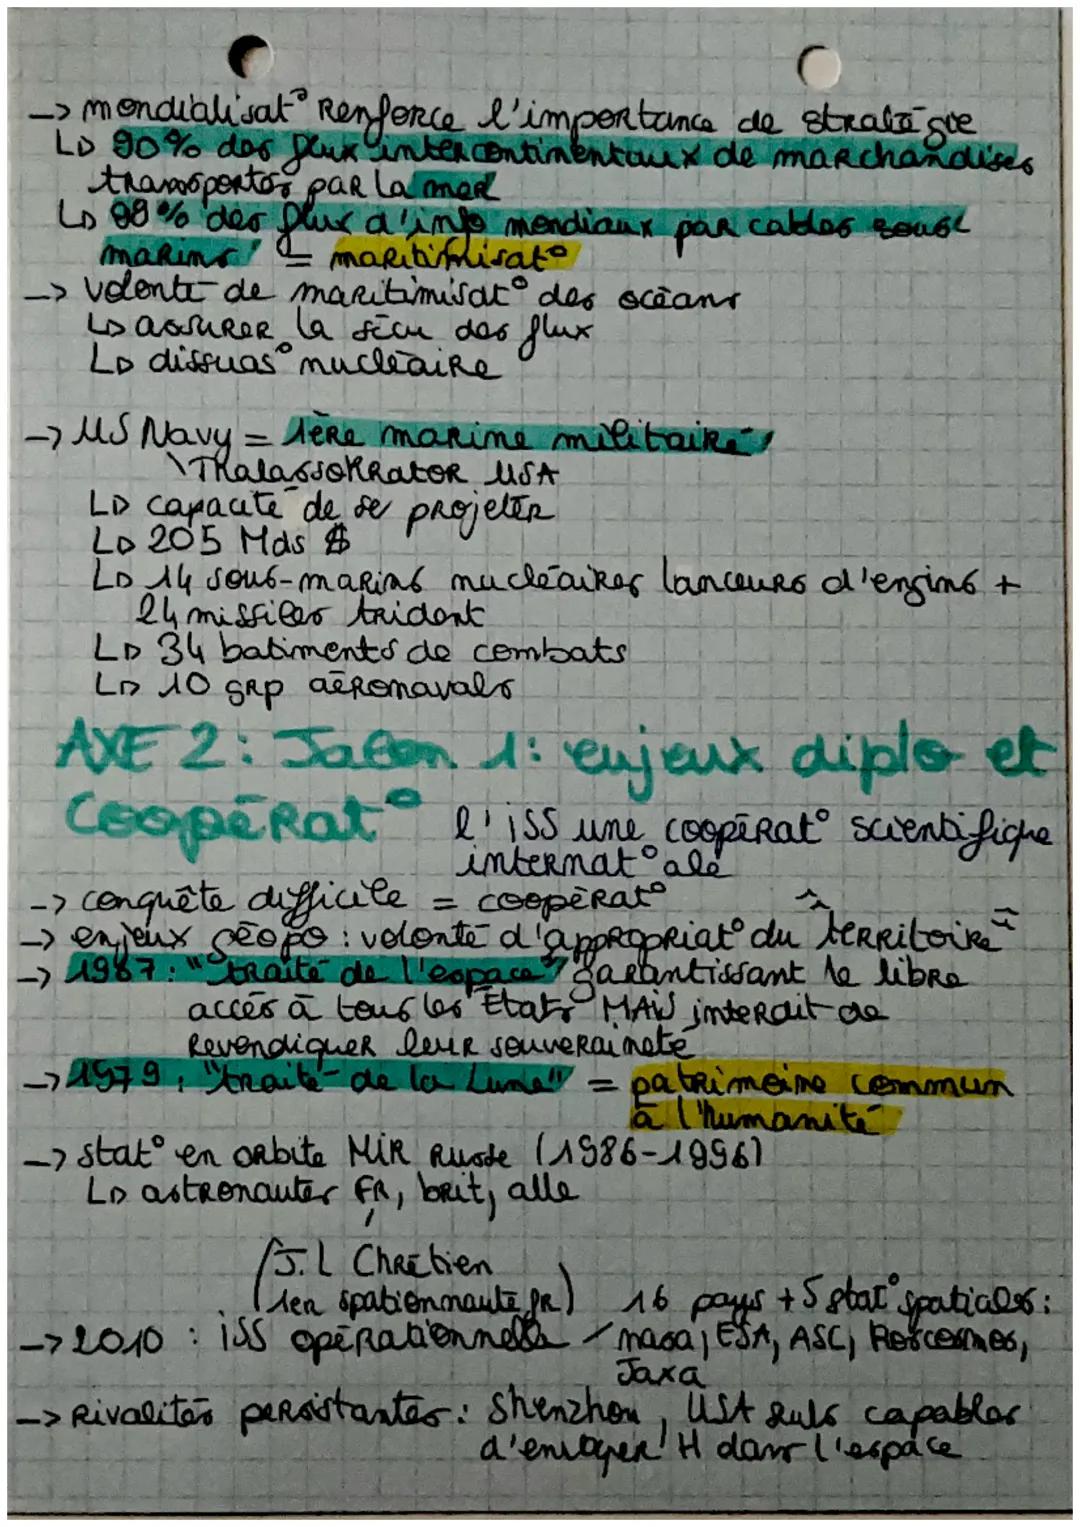 -> mondialisat° renforce l'importance de stratégie
↳ 90% des flux intercontinentaux de marchandises
transportés par la mer
↳ 99% des flux d'info mondiaux par cables sous
marins = maritimisat°
-> volonté de maritimisat° des océans
↳ assurer la sécu des flux
↳ dissuas° nucléaire
-> US Navy = 1ère marine militaire
\Thalassokrator USA
↳ capacité de se projeter
↳ 205 Mds $
↳ 14 sous-marins nucléaires lanceurs d'engins +
24 missiles trident
↳ 34 batiments de combats
↳ 10 grp aéronavals
AXE 2: Jalon 1: enjeux diplo et
coopérat°
l'iSS une coopérat° scientifique
internat°ale
-> conquête difficile = coopérat°
-> enjeux géopo : volonté d'appropriat° du "territoire"
-> 1967: "traité de l'espace" garantissant le libre
accès à tous les États MAIS interdit de
revendiquer leur souveraineté
-> 1979: "traité de la Lune" = patrimoine commun
à l'humanité
-> stat° en orbite MIR Russe (1986-1996)
↳ astronautes FR, brit, alle
(J.L Chrétien
1er spationnaute FR)
16 pays + 5 stat° spatiales:
-> 2010 : iSS opérationnelle / nasa, ESA, ASC, Roscosmos,
Jaxa
-> Rivalités persistantes: Shenzhou, USA suls capables
d'envoyer H dans l'espace